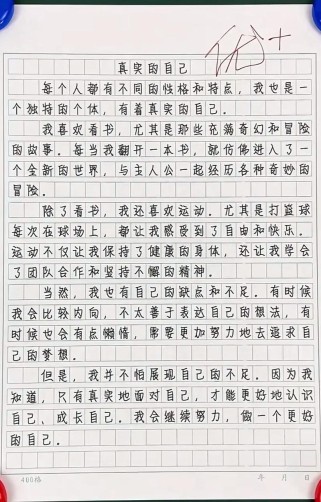 优+
真实的自己
每个人都有不同的性格和特点，我也是一
个独特的个体，有着真实的自己。
我喜欢看书，尤其是那些充满奇幻和冒险
的故事。每当我翻开一本书，就仿佛进入了一
个全新的世界，与主人公一起经历各种奇妙的
冒险。
除了看书，我还喜欢运动。尤其是打篮球
每次在球场上，都让我感受到了自由和快乐。
运动不仅让我保持了健康的身体，还让我学会
了团队合作和坚持不懈的精神。
当然，我也有自己的缺点和不足。有时候
我会比较内向，不太善于表达自己的想法，有
时候也会有点懒惰，需要更加努力地去追求自
己的梦想。
但是，我并不怕展现自己的不足。因为我
知道，只有真实地面对自己，才能更好地认识
自己、成长自己。我会继续努力，做一个更好
的自己。
400格
年 月 日